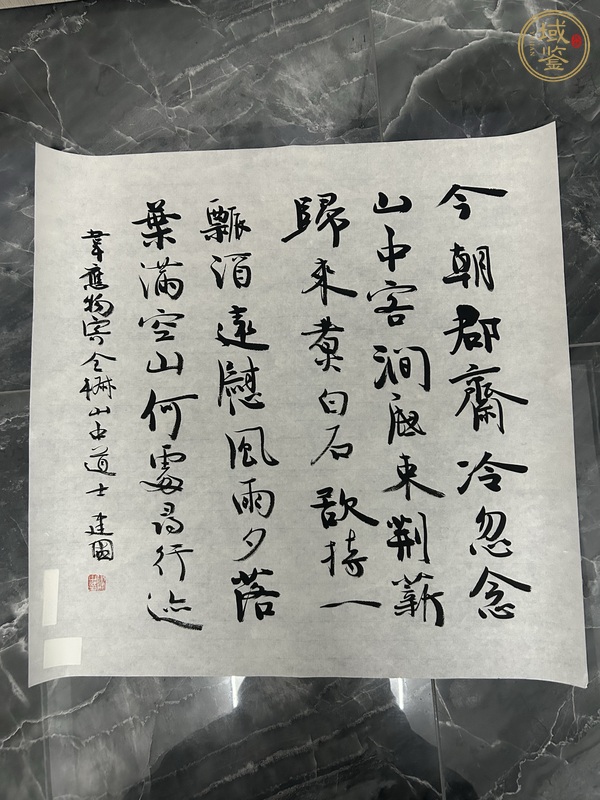 今朝郡齋冷忽念
山中客澗底束荆薪
歸來煮白石欲持一
瓢酒遠慰風雨夕落
葉满空山何處尋行迹
韋應物寄全椒山中道士 建國
域鉴